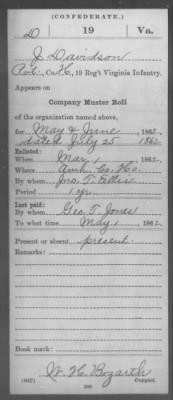 (CONFEDERATE.)
D 19 Va.
J Davidson
Pvt., Co. K, 19 Reg't Virginia Infantry.
Appears on
Company Muster Roll
of the organization named above,
for May & June, 1862.
dated July 25 1862
Enlisted:
When May 1, 186
Where Am. Co. Ho.
By whom Jno. T. Ellis
Period 1 yr.
Last paid:
By whom Geo. T. Jones
To what time May 1, 1862.
Present or absent present
Remarks:
Book mark:
(642) W. H. Bogarth
Copyist.